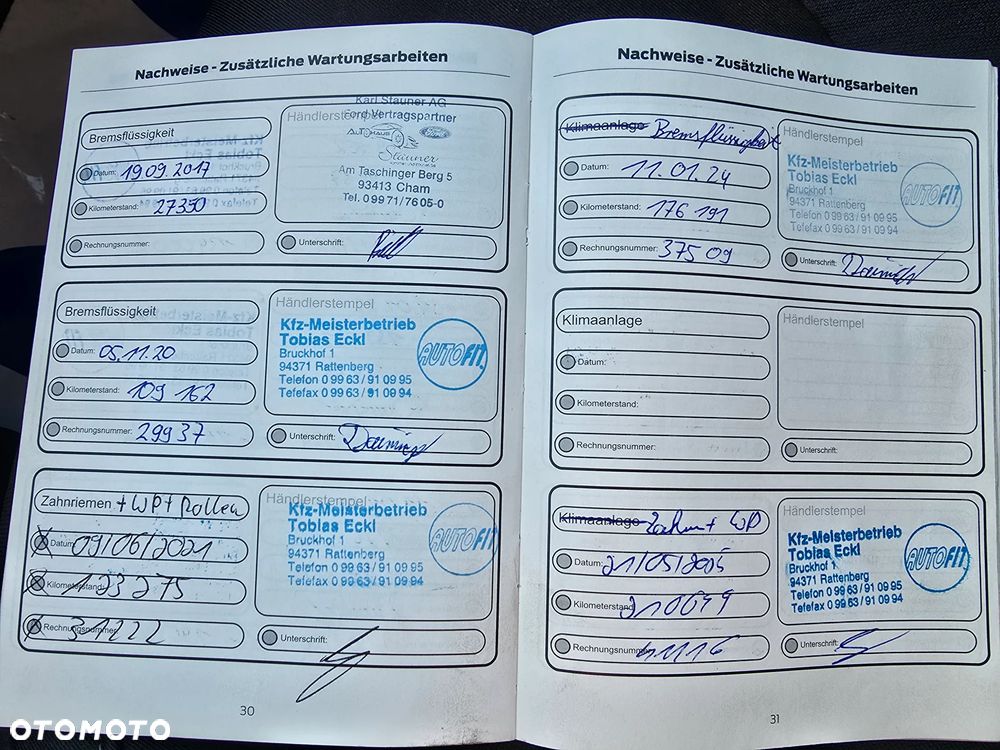 Nachweise - Zusätzliche Wartungsarbeiten
Bremsflüssigkeit
Datum: 19.09.2017
Kilometerstand: 27350
Rechnungsnummer:
Händlerstempel
Karl Stauner AG
Ford Vertragspartner
AUTOHAUS
Ford
Stauner
Am Taschinger Berg 5
93413 Cham
Tel. 0 99 71/76 05-0
Unterschrift:
Bremsflüssigkeit
Datum: 05.11.20
Kilometerstand: 109 162
Rechnungsnummer: 29937
Händlerstempel
Kfz-Meisterbetrieb
Tobias Eckl
Bruckhof 1
94371 Rattenberg
Telefon 0 99 63/ 91 09 95
Telefax 0 99 63/ 91 09 94
AUTOFIT
Unterschrift:
Zahnriemen + WP + Rollen
Datum: 09/06/2021
Kilometerstand: 123 275
Rechnungsnummer: 31222
Händlerstempel
Kfz-Meisterbetrieb
Tobias Eckl
Bruckhof 1
94371 Rattenberg
Telefon 0 99 63/ 91 09 95
Telefax 0 99 63/ 91 09 94
AUTOFIT
Unterschrift:
30
Nachweise - Zusätzliche Wartungsarbeiten
Klimaanlage Bremsflüssigkeit
Datum: 11.01.24
Kilometerstand: 176 191
Rechnungsnummer: 37509
Händlerstempel
Kfz-Meisterbetrieb
Tobias Eckl
Bruckhof 1
94371 Rattenberg
Telefon 0 99 63/ 91 09 95
Telefax 0 99 63/ 91 09 94
AUTOFIT
Unterschrift:
Klimaanlage
Datum:
Kilometerstand:
Rechnungsnummer:
Händlerstempel
Unterschrift:
Klimaanlage + WP
Datum: 21/05/2025
Kilometerstand: 210679
Rechnungsnummer: 41116
Händlerstempel
Kfz-Meisterbetrieb
Tobias Eckl
Bruckhof 1
94371 Rattenberg
Telefon 0 99 63/ 91 09 95
Telefax 0 99 63/ 91 09 94
AUTOFIT
Unterschrift:
31
OTOMOTO